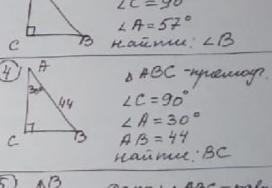 ∠C = 90°
∠A = 57°
C B найти: ∠B
4 A △ABC - прямоуг.
30° 44 ∠C = 90°
∠A = 30°
C B AB = 44
найти: BC
5) B △ABC